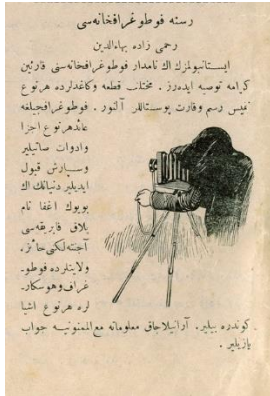 رسنه فوطوغرافخانه‌سی
رحمی زاده بهاءالدین
ایستانبولمزك اك نامدار فوطوغرافخانه‌سنی قارئین
کرامه توصیه ایده‌رز. مختلف قطعه وکاغدلرده هرنوع
نفیس رسم وقارت پوستاللر آلنور. فوطوغرافجیلغه
عائد هرنوع اجزا
وادوات صاتیلیر
وسپارش قبول
ایدیلیر دنیانك اك
بویوك اغفا نام
پلاق فابریقه‌سی
آجنته‌لکنی حائز.
ولایتلرده فوطو-
غراف وهوسکار-
لره هرنوع اشیا
کوندره بیلیر. آرانیلاجاق معلوماته مع الممنونیه جواب
یازیلیر.